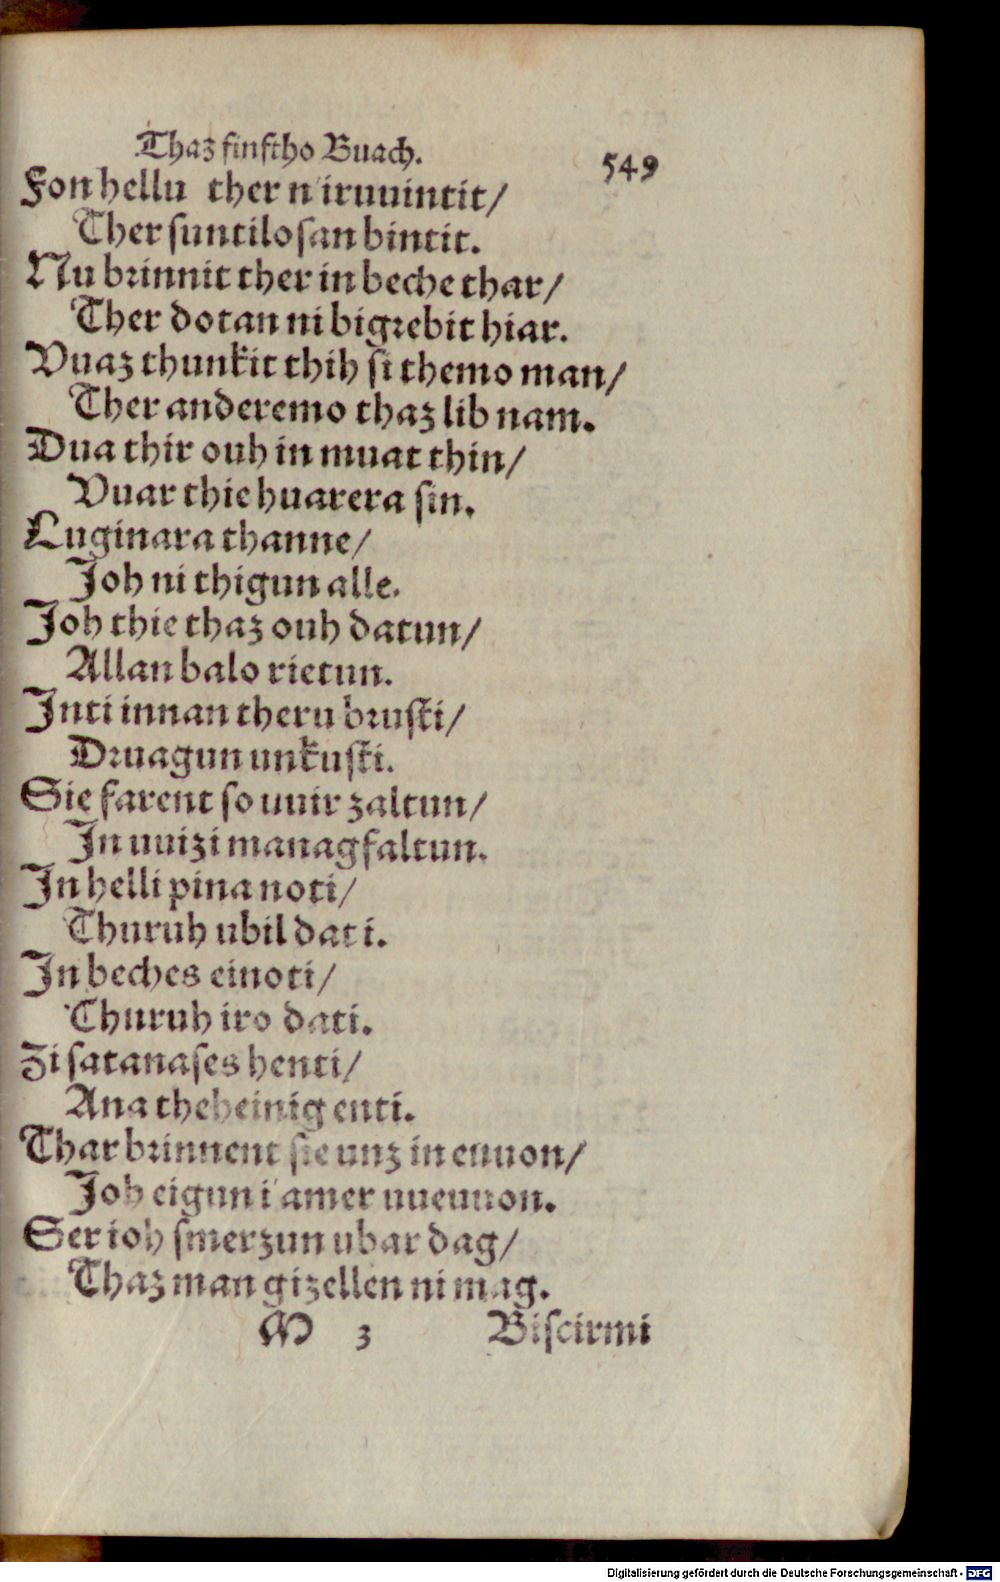 Thaz finftho Buach. 549
Fon hellu ther n'iruuintit/
Ther suntilosan bintit.
Nu brinnit ther in beche thar/
Ther dotan ni bigrebit hiar.
Vuaz thunkit thih si themo man/
Ther anderemo thaz lib nam.
Dua thir ouh in muat thin/
Vuar thie huarera sin.
Luginara thanne/
Joh ni thigun alle.
Joh thie thaz ouh datun/
Allan balo rietun.
Inti innan theru bruski/
Druagun unkuski.
Sie farent so uuir zaltun/
In uuizi managfaltun.
In helli pina noti/
Thuruh ubil dati.
In beches einoti/
Thuruh iro dati.
Zi satanases henti/
Ana theheinig enti.
Thar brinnent sie unz in euuon/
Joh eigun i'amer uueuuon.
Ser ioh smerzun ubar dag/
Thaz man gizellen ni mag.
M 3 Biscirmi
Digitalisierung gefördert durch die Deutsche Forschungsgemeinschaft - DFG